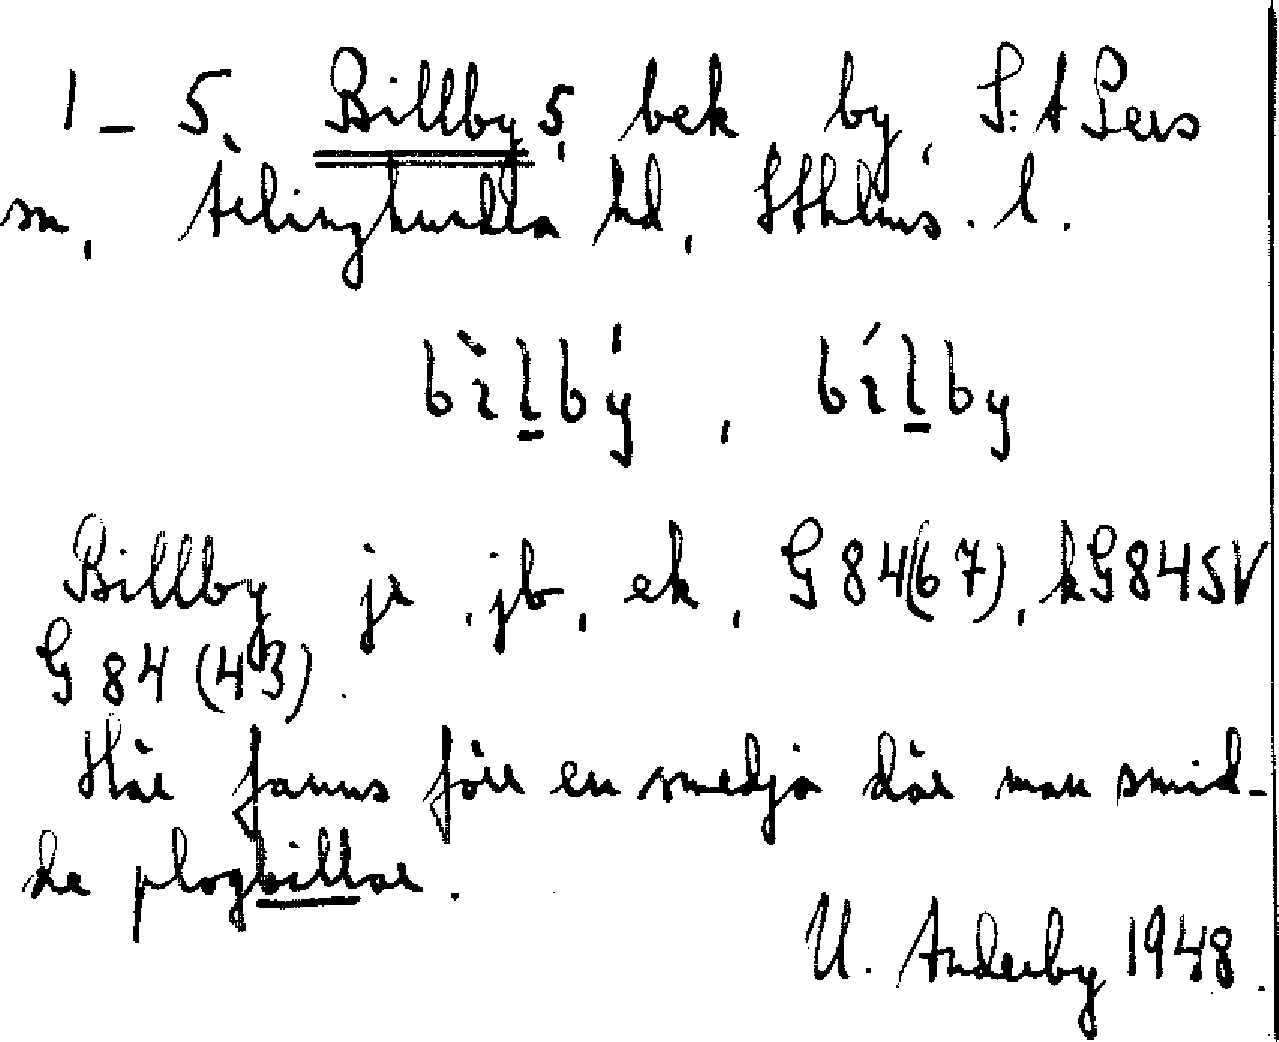 1-5. Billby 5, bek by, S:t Pers
sn, Ärlinghundra hd, Sthlms. l.
bìlbý, bílby
Billby jr, jb, ek, G84(67), kG84SV
G84(43).
Här fanns förr en smedja där man smid-
de plogbillar.
U. Anderby 1948.